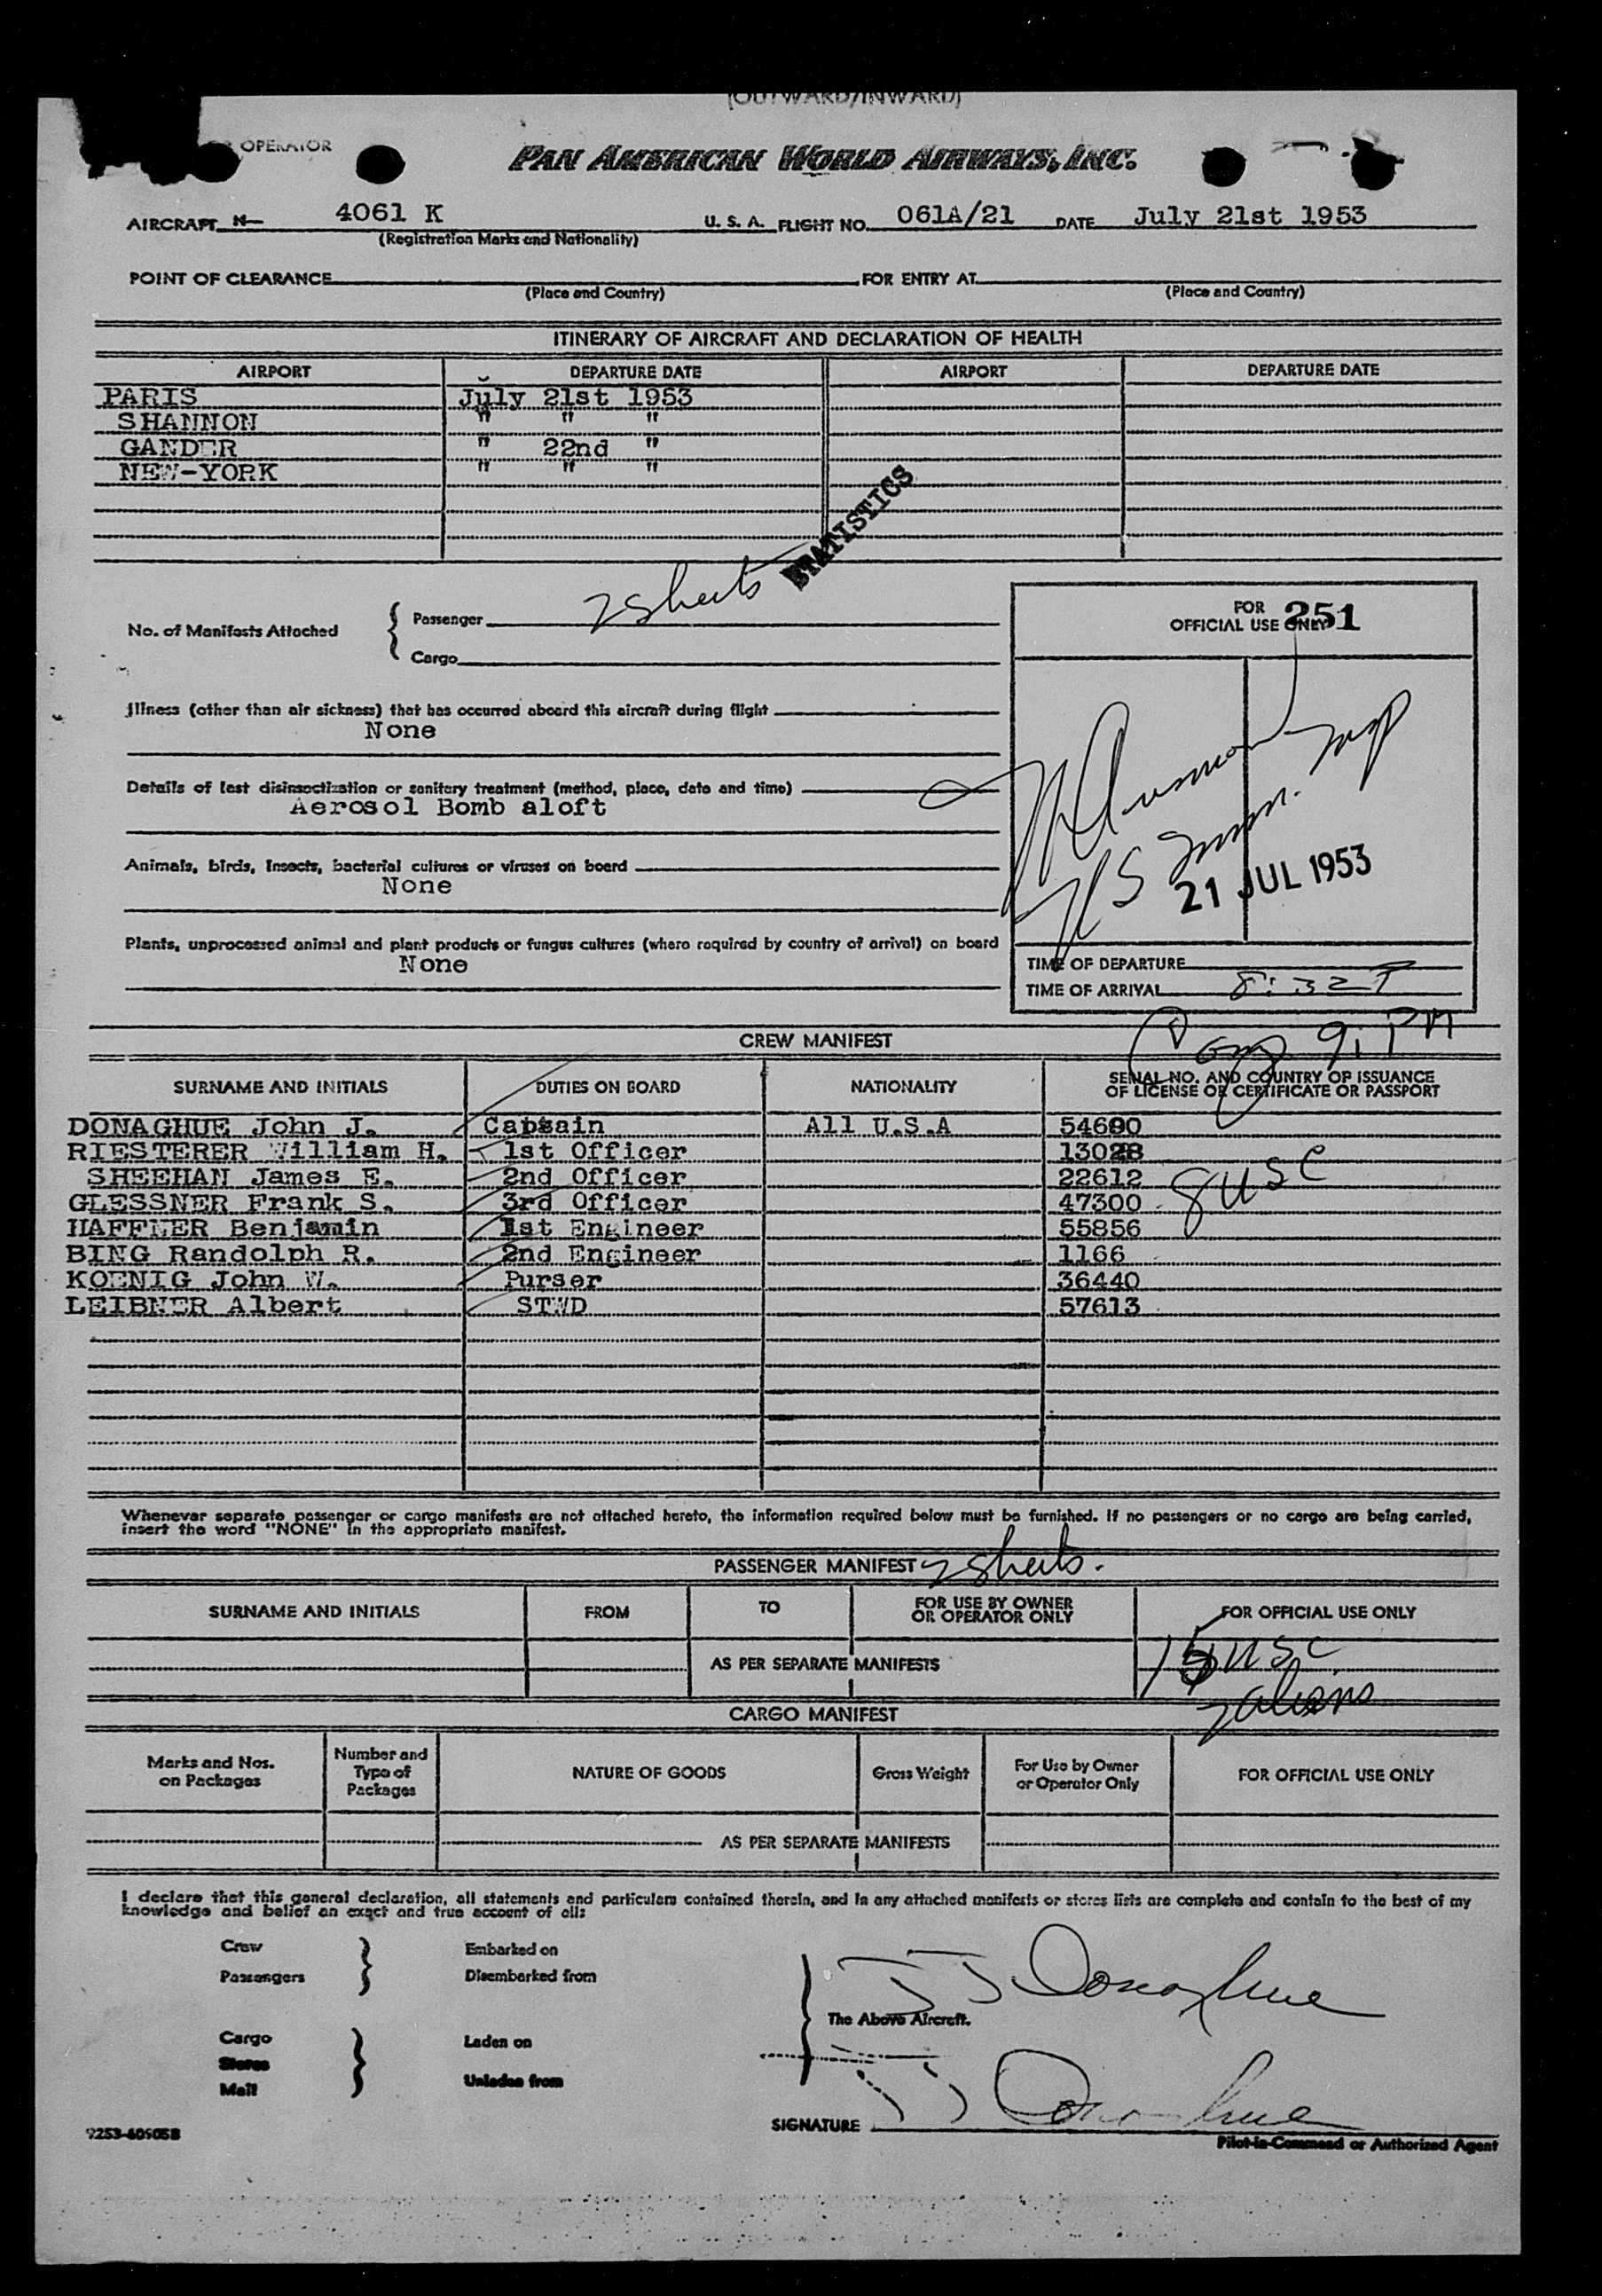 (OUTWARD/INWARD)
OPERATOR
PAN AMERICAN WORLD AIRWAYS, INC.
AIRCRAFT N- 4061 K U. S. A. FLIGHT NO. 061A/21 DATE July 21st 1953
(Registration Marks and Nationality)
POINT OF CLEARANCE FOR ENTRY AT
(Place and Country) (Place and Country)
ITINERARY OF AIRCRAFT AND DECLARATION OF HEALTH
AIRPORT DEPARTURE DATE AIRPORT DEPARTURE DATE
PARIS July 21st 1953
SHANNON " " "
GANDER " 22nd "
NEW-YORK " " "
STATISTICS
No. of Manifests Attached { Passenger 2 sheets
Cargo
FOR
OFFICIAL USE ONLY 251
Illness (other than air sickness) that has occurred aboard this aircraft during flight
None
Details of last disinsectization or sanitary treatment (method, place, date and time)
Aerosol Bomb aloft
Animals, birds, insects, bacterial cultures or viruses on board
None
Plants, unprocessed animal and plant products or fungus cultures (where required by country of arrival) on board
None
US Imm. Insp
21 JUL 1953
TIME OF DEPARTURE
TIME OF ARRIVAL 8:32 P
9: PM
CREW MANIFEST
SURNAME AND INITIALS DUTIES ON BOARD NATIONALITY SERIAL NO. AND COUNTRY OF ISSUANCE
OF LICENSE OR CERTIFICATE OR PASSPORT
DONAGHUE John J. Captain All U.S.A 54690
RIESTERER William H. 1st Officer 13028
SHEEHAN James E. 2nd Officer 22612
GLESSNER Frank S. 3rd Officer 47300
HAFFNER Benjamin 1st Engineer 55856
BING Randolph R. 2nd Engineer 1166
KOENIG John W. Purser 36440
LEIBNER Albert STWD 57613
8 USC
Whenever separate passenger or cargo manifests are not attached hereto, the information required below must be furnished. If no passengers or no cargo are being carried,
insert the word "NONE" in the appropriate manifest.
PASSENGER MANIFEST 2 sheets.
SURNAME AND INITIALS FROM TO FOR USE BY OWNER
OR OPERATOR ONLY FOR OFFICIAL USE ONLY
AS PER SEPARATE MANIFESTS
USC
aliens
CARGO MANIFEST
Marks and Nos.
on Packages Number and
Type of
Packages NATURE OF GOODS Gross Weight For Use by Owner
or Operator Only FOR OFFICIAL USE ONLY
AS PER SEPARATE MANIFESTS
I declare that this general declaration, all statements and particulars contained therein, and in any attached manifests or stores lists are complete and contain to the best of my
knowledge and belief an exact and true account of all:
Crew Embarked on
Passengers Disembarked from
J J Donaghue
The Above Aircraft.
Cargo Laden on
Stores
Mail Unladen from
SIGNATURE J J Donaghue
Pilot-in-Command or Authorized Agent
9253-60505B